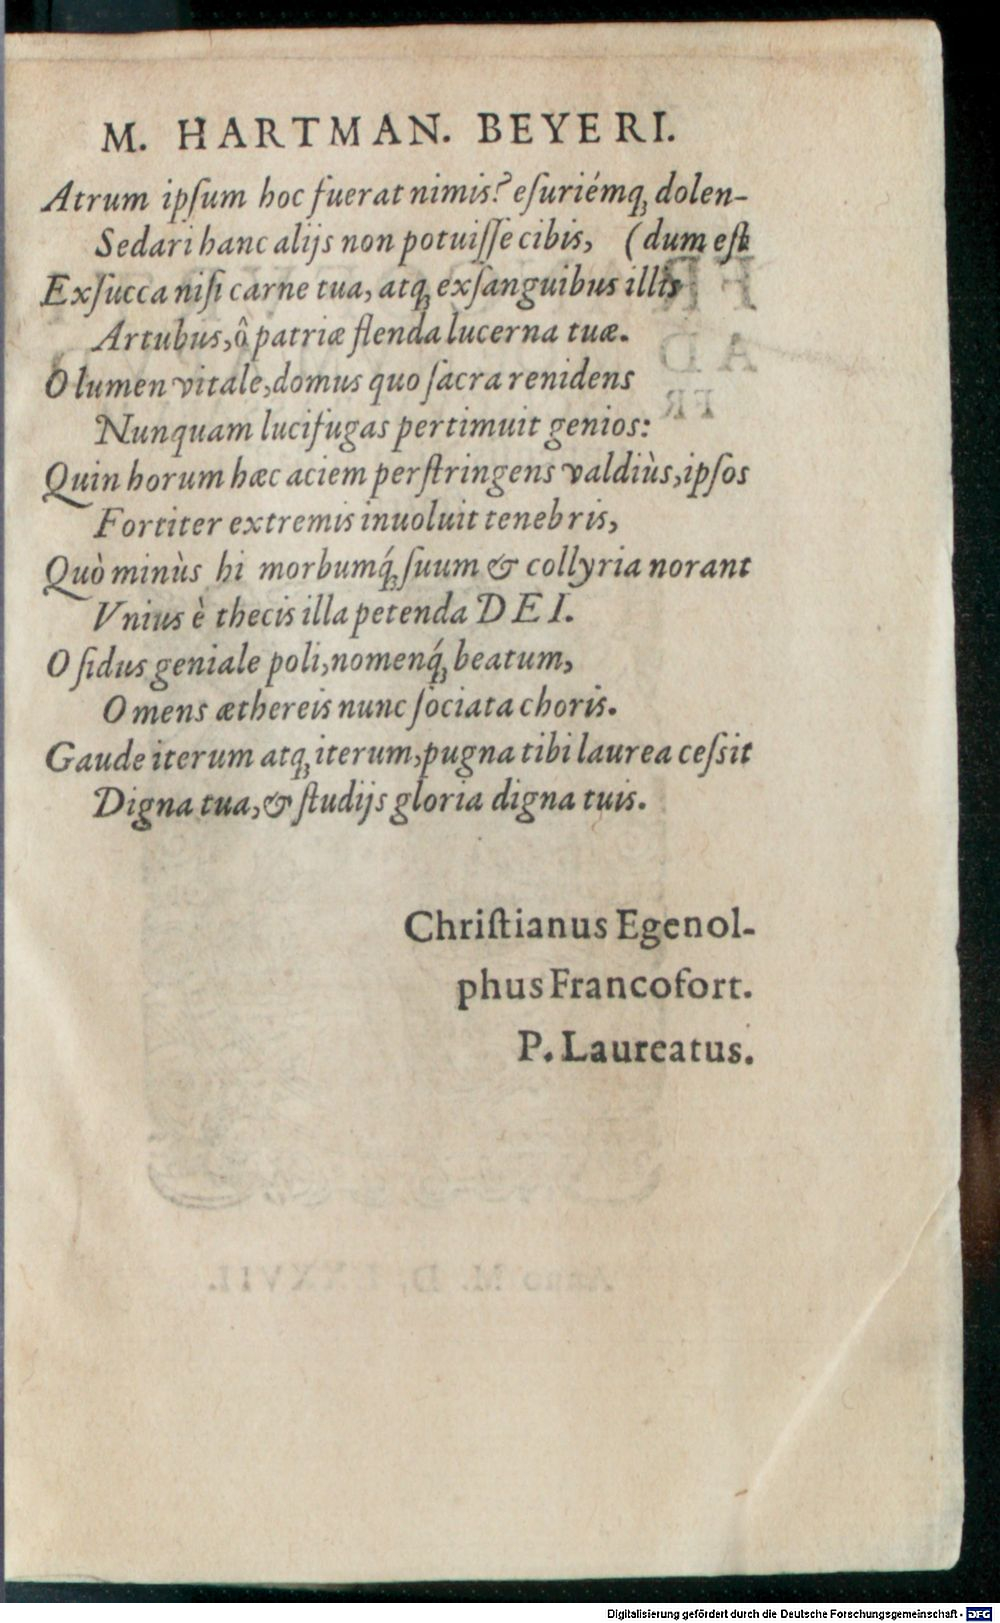 M. HARTMAN. BEYERI.
Atrum ipſum hoc fuerat nimis? eſuriémq; dolen-
Sedari hanc alijs non potuiſſe cibis, (dum eſt
Exſucca niſi carne tua, atq; exſanguibus illis
Artubus, ô patriæ flenda lucerna tuæ.
O lumen vitale, domus quo ſacra renidens
Nunquam lucifugas pertimuit genios:
Quin horum hæc aciem perſtringens valdiùs, ipſos
Fortiter extremis inuoluit tenebris,
Quò minùs hi morbumq́; ſuum & collyria norant
Vnius è thecis illa petenda DEI.
O ſidus geniale poli, nomenq́; beatum,
O mens æthereis nunc ſociata choris.
Gaude iterum atq; iterum, pugna tibi laurea ceſsit
Digna tua, & ſtudijs gloria digna tuis.
Chriſtianus Egenol-
phus Francofort.
P. Laureatus.
Anno M. D. LXXVII.
Digitalisierung gefördert durch die Deutsche Forschungsgemeinschaft - DFG